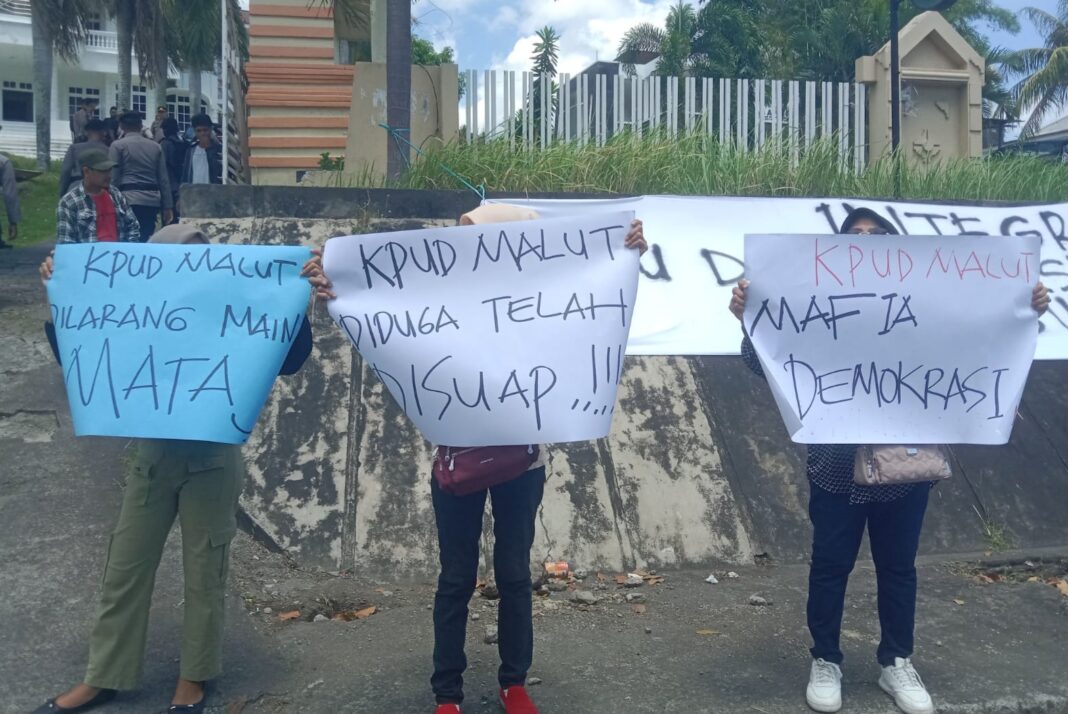 KPUD MALUT
DILARANG MAIN
MATA
KPUD MALUT
DIDUGA TELAH
DISUAP ..!!!
KPUD MALUT
MAFIA
DEMOKRASI